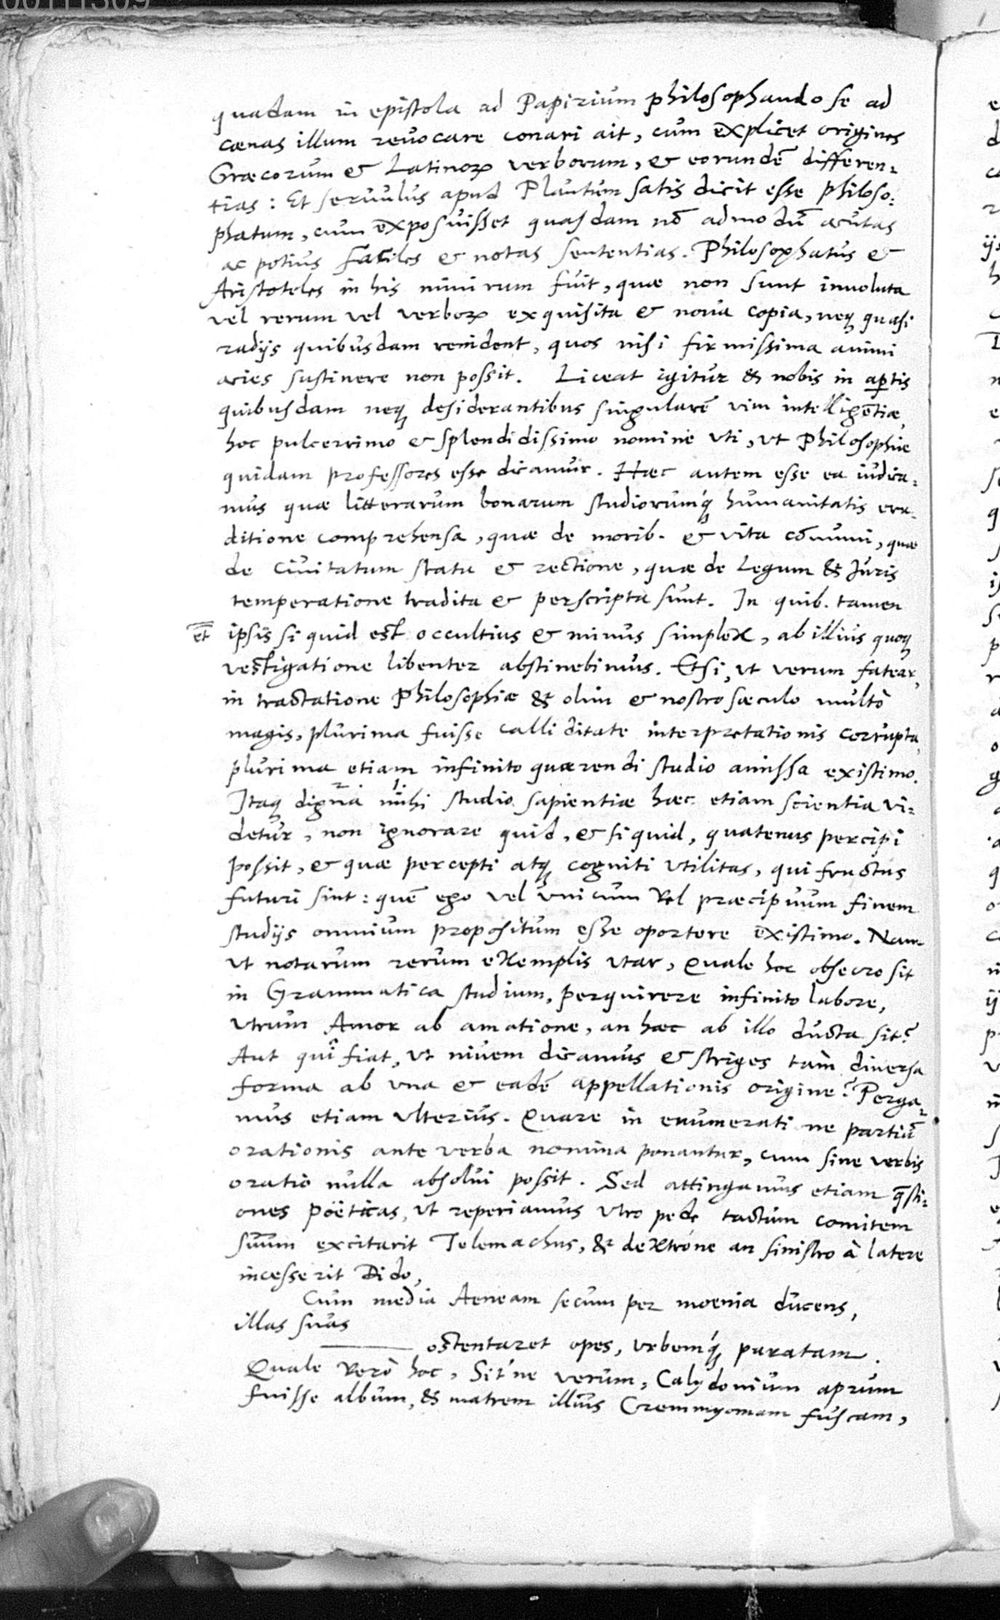 00111309
quadam in epistola ad Papirium philosophando se ad
cœnas illum reuocare conari ait, cum explicet origines
Græcorum & Latinoꝝ verborum, & eorundē differen-
tias: Et seruulus apud Plautum satis dicit esse philoso-
phatum, cum exposuisset quasdam nō admodū acutas
ac potius faciles & notas sententias. Philosophatus &
Aristoteles in his nimirum fuit, quæ non sunt inuoluta
vel rerum vel verboꝝ exquisita & noua copia, neq; quasi
radijs quibusdam renident, quos nisi firmissima animi
acies sustinere non possit. Liceat igitur & nobis in aꝑtis
quibusdam neq; desiderantibus singularē vim intelligētiæ,
hoc pulcerrimo & splendidissimo nomine vti, vt Philosophiæ
quidam professores esse dicamur. Hæc autem esse ea iudica-
mus quæ litterarum bonarum studiorumq́; humanitatis eru-
ditione comprehensa, quæ de morib. & vita cōmuni, quæ
de Ciuitatum statu & rectione, quæ de Legum & Juris
temperatione tradita & perscripta sunt. In quib. tamen
et ipsis si quid est occultius & minus simplex, ab illius quoq;
vestigatione libenter abstinebimus. Etsi, vt verum fatear,
in tractatione Philosophiæ & olim & nostro sæculo multò
magis, plurima fuisse calliditate interpretationis corrupta,
plurima etiam infinito quærendi studio amissa existimo.
Itaq; digna mihi studio sapientiæ hæc etiam scientia vi-
detur, non ignorare quid, & si quid, quatenus percipi
possit, & quæ percepti atq; cogniti vtilitas, qui fructus
futuri sint: quē ego vel vnicum vel præcipuum finem
studijs omnium propositum esse oportere existimo. Nam
vt notarum rerum exemplis vtar, Quale hoc obsecro sit
in Grammatica studium, perquirere infinito labore,
Vtrum Amor ab amatione, an hæc ab illo ducta sit?
Aut quî fiat, vt niuem dicamus & striges tam diuersa
forma ab vna & eadē appellationis origine? Perga-
mus etiam vlterius. Quare in enumerati ne partiū
orationis ante verba nomina ponantur, cum sine verbis
oratio nulla absolui possit. Sed attingamus etiam q̄sti-
ones Poëticas, vt reperiamus vtro pede tactum comitem
suum excitarit Telemachus, & dextróne an sinistro à latere
incesserit Dido,
Cum media Aeneam secum per moenia ducens,
illas suas
ostentaret opes, vrbemq́; paratam.
Quale verò hoc, Sit'ne verum, Calydonium aprum
fuisse album, & matrem illius Cremmyoniam fuscam,